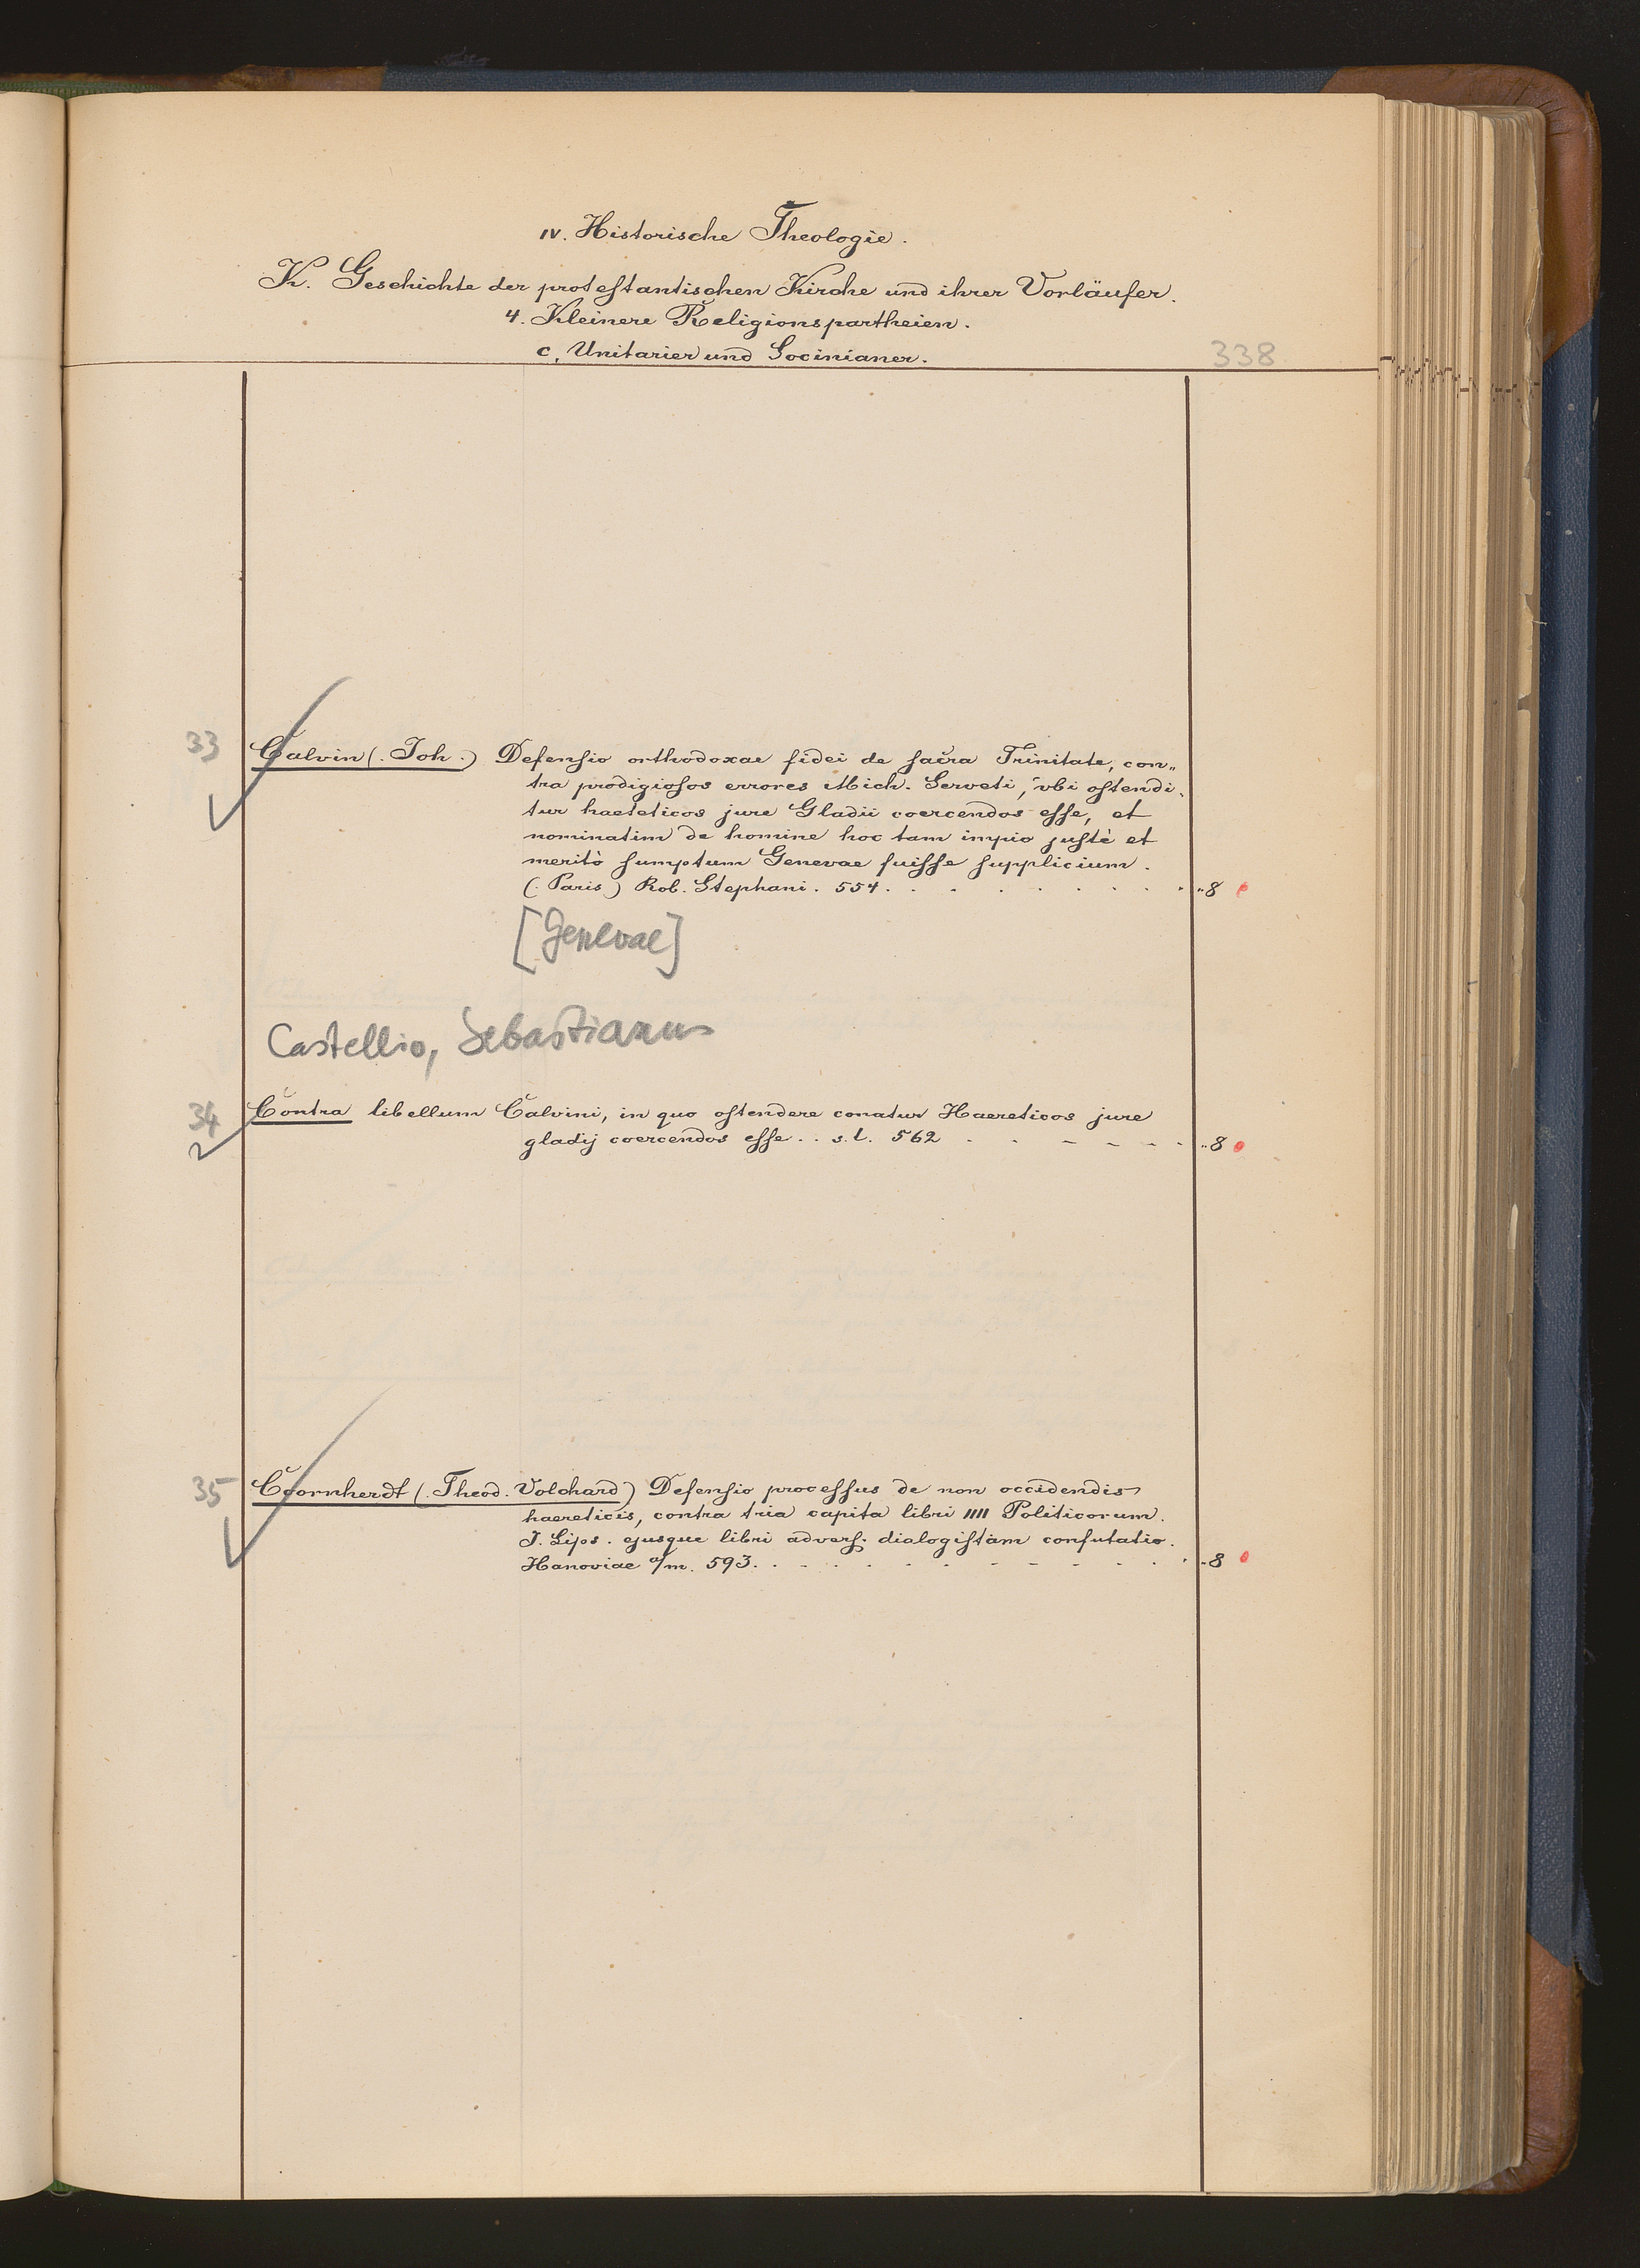 IV. Historische Theologie.
K. Geschichte der protestantischen Kirche und ihrer Vorläufer.
4. Kleinere Religionspartheien.
c, Unitarier und Socinianer.
338
33 Calvin (. Joh.) Defensio orthodoxae fidei de sacra Trinitate, con„
tra prodigiosos errores Mich. Serveti, vbi ostendi„
tur haeteticos jure Gladii coercendos esse, et
nominatim de homine hoc tam impio justè et
meritò sumptum Genevae fuisse supplicium.
(. Paris) Rob. Stephani. 554. „8
[Genevae]
Castellio, Sebastianus
34 Contra libellum Calvini, in quo ostendere conatur Haereticos jure
gladij coercendos esse. . s. l. 562 „8
35 Coornherdt (. Theod. Volchard) Defensio processus de non occidendis
haereticis, contra tria capita libri IIII Politicorum.
J. Lips. ejusque libri advers. dialogistam confutatio.
Hanoviae a/m. 593. „8